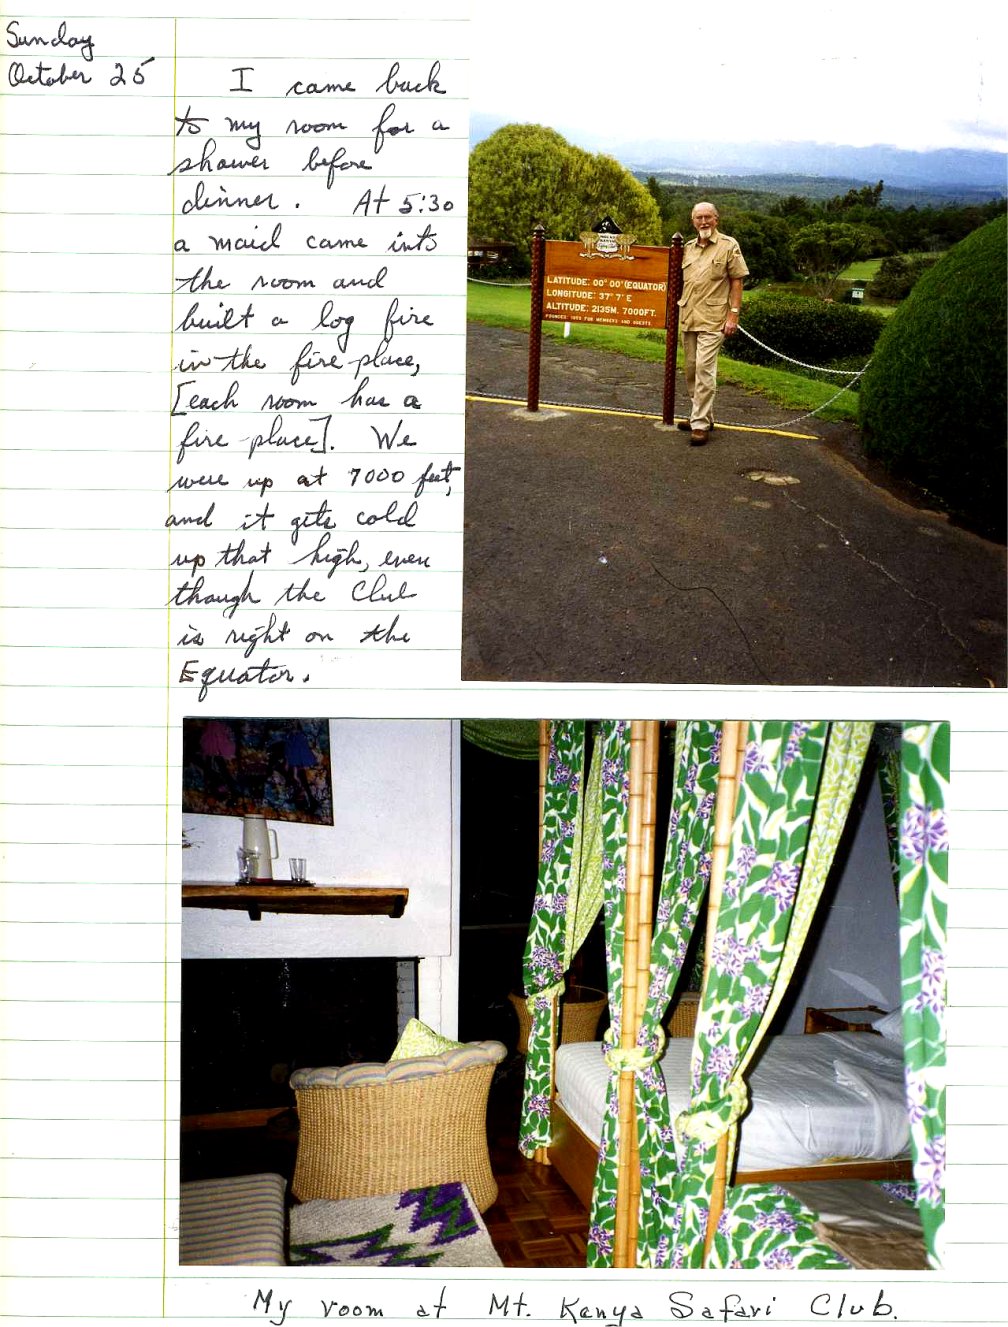 Sunday
October 25
I came back
to my room for a
shower before
dinner. At 5:30
a maid came into
the room and
built a log fire
in the fire place,
[each room has a
fire place]. We
were up at 7000 feet,
and it gets cold
up that high, even
though the Club
is right on the
Equator.
LATITUDE: 00° 00' (EQUATOR)
LONGITUDE: 37° 7' E
ALTITUDE: 2135M. 7000FT.
FOUNDED 1959 FOR MEMBERS AND GUESTS
My room at Mt. Kenya Safari Club.